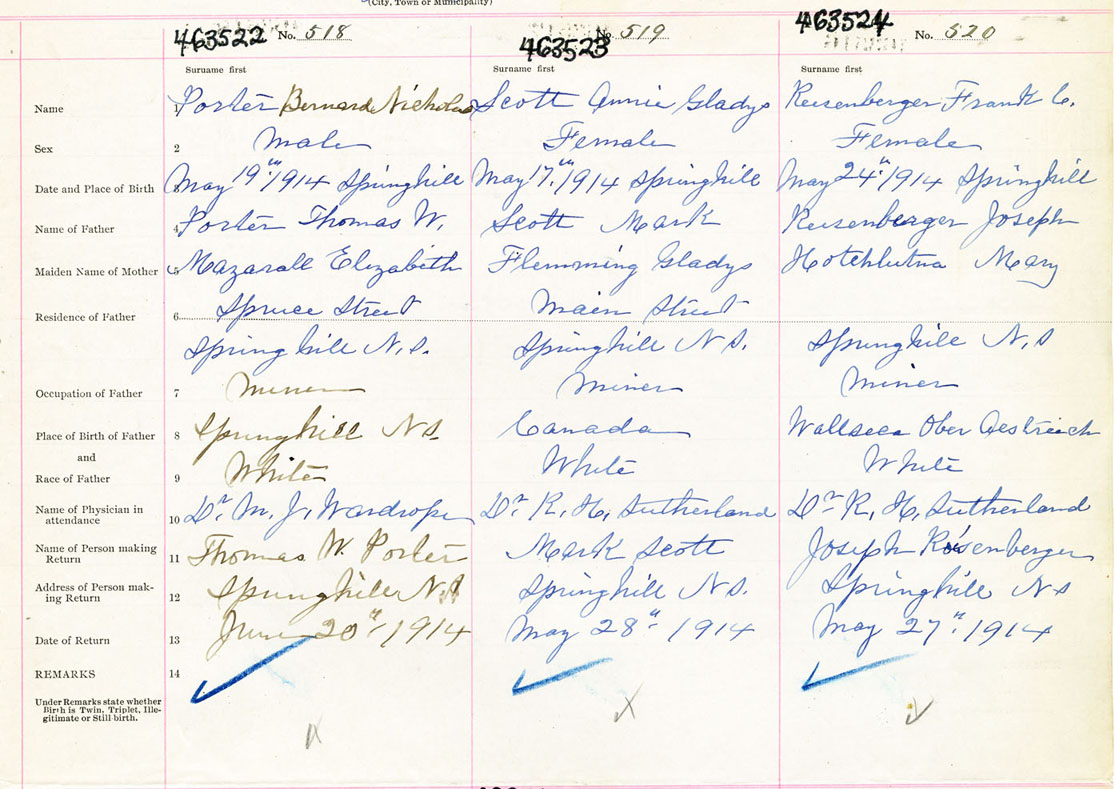 (City, Town or Municipality)
463522 No. 518 463523 No. 519 463524 No. 520
Surname first Surname first Surname first
Name 1 Porter Bernard Nicholas Scott Annie Gladys Reisenberger Frank C.
Sex 2 Male Female Female
Date and Place of Birth 3 May 19th 1914 Springhill May 17th 1914 Springhill May 24th 1914 Springhill
Name of Father 4 Porter Thomas W. Scott Mark Reisenberger Joseph
Maiden Name of Mother 5 Mazarall Elizabeth Flemming Gladys Mary
Residence of Father 6 Spruce Street Main Street
Springhill N.S. Springhill N S. Springhill N, S
Occupation of Father 7 Miner Miner Miner
Place of Birth of Father 8 Springhill N S. Canada Wallsee Ober Oestreich
and
Race of Father 9 White White White
Name of Physician in
attendance 10 Dr. M. J. Wardrope Dr R. H. Sutherland Dr R, H, Sutherland
Name of Person making
Return 11 Thomas W. Porter Mark Scott Joseph Risenberger
Address of Person mak-
ing Return 12 Springhill N.S Springhill N S. Springhill N S
Date of Return 13 June 20th 1914 May 28th 1914 May 27th 1914
REMARKS 14
Under Remarks state whether
Birth is Twin, Triplet, Ille-
gitimate or Still-birth.